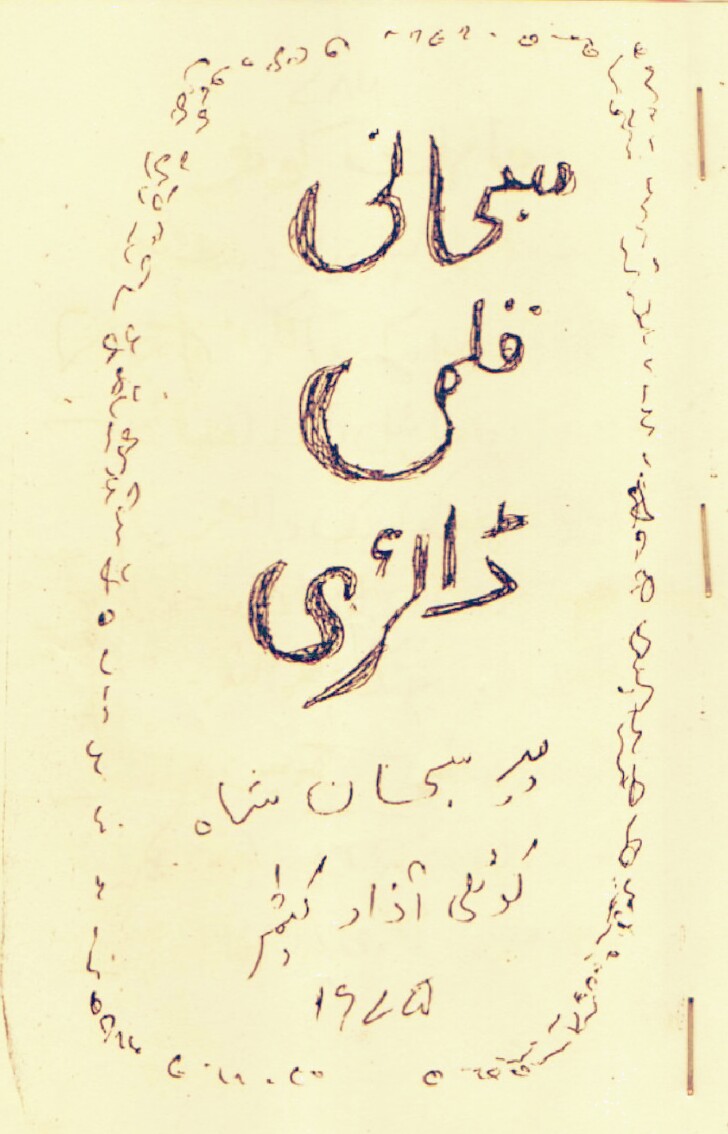 سبحانی
قلمی
ڈائری
پیر سبحان شاہ
کوٹلی آزاد کشمیر
۱۹۷۵